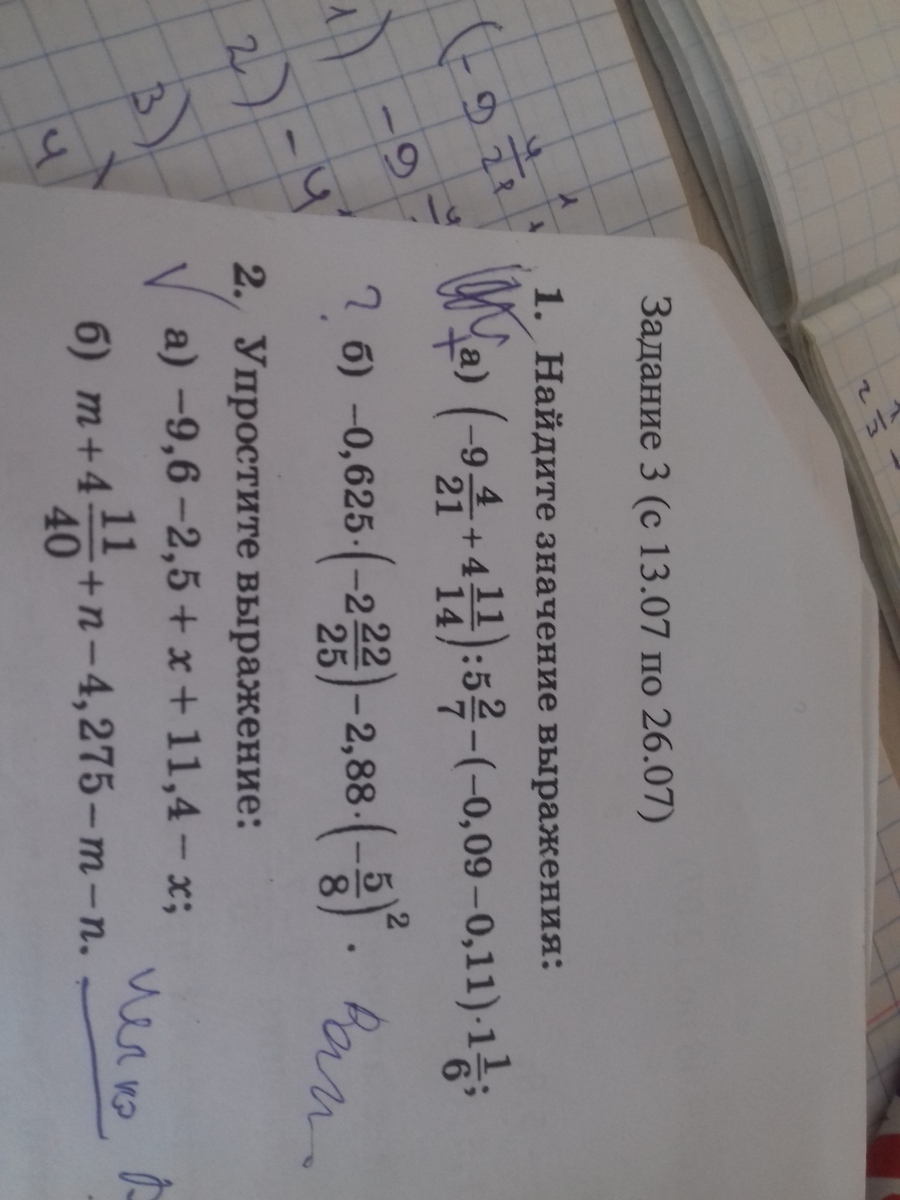 (-9 4/21
1) -9
2) -4
3)
4)
Задание 3 (с 13.07 по 26.07)
1. Найдите значение выражения:
+ а) (-9 4/21 + 4 11/14) : 5 2/7 - (-0,09 - 0,11) · 1 1/6;
? б) -0,625 · (-2 22/25) - 2,88 · (-5/8)².
2. Упростите выражение:
√ а) -9,6 - 2,5 + x + 11,4 - x;
б) m + 4 11/40 + n - 4,275 - m - n.